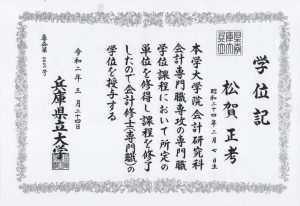 学位記
松賀正考
昭和二十四年二月七日生
本学大学院会計研究科
会計専門職専攻の専門職
学位課程において所定の
単位を修得し課程を修了
したので会計修士(専門職)の
学位を授与する
令和二年三月二十四日
兵庫県立大学